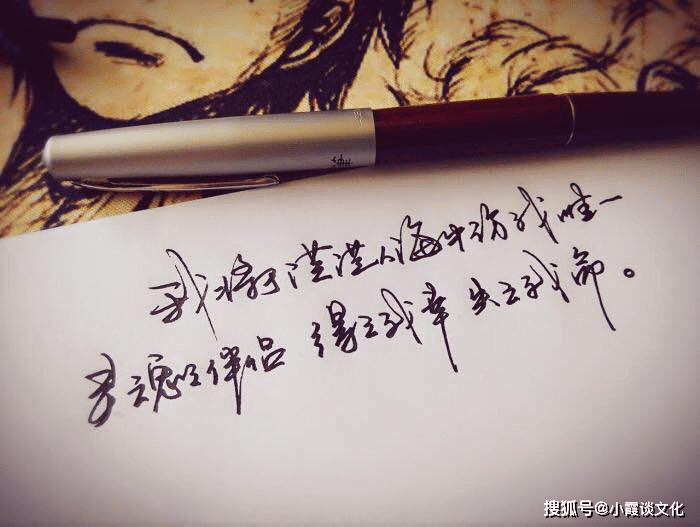 我将于茫茫人海中访我唯一
灵魂之伴侣 得之我幸 失之我命。
搜狐号@小霞谈文化